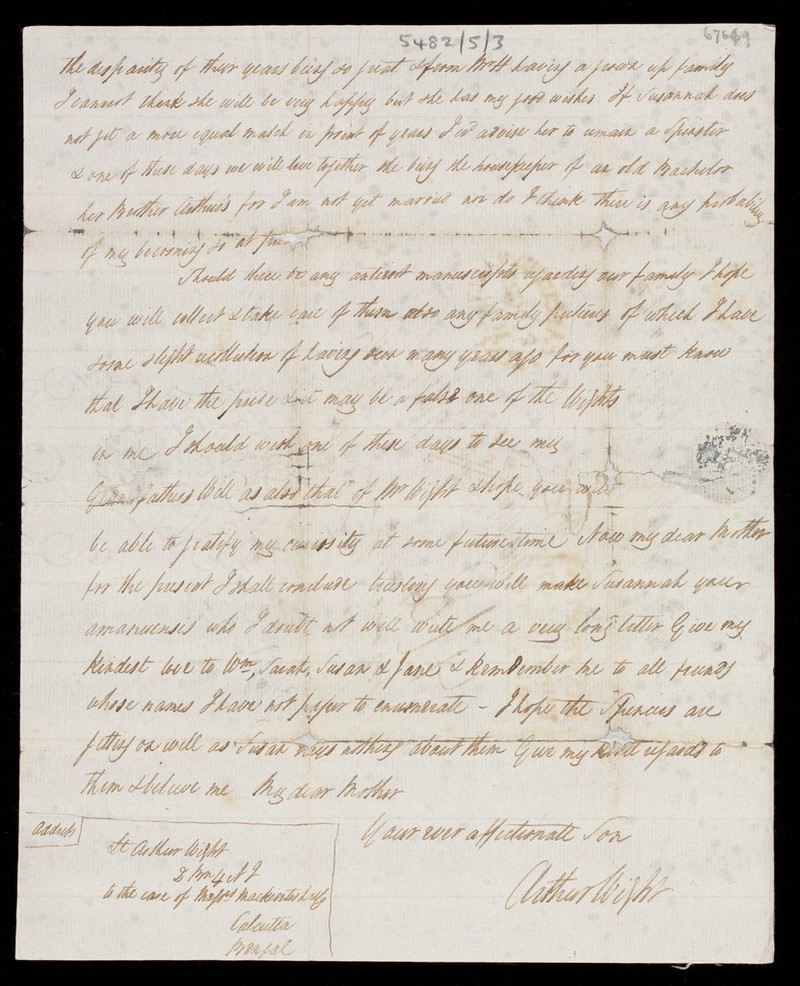 5482/5/3
the disparity of their years being so great & from Mr H having a grown up family
I cannot think she will be very happy but she has my good wishes If Susannah does
not get a more equal match in point of years I wd advise her to remain a Spinster
& one of these days we will live together she being the housekeeper of an old Bachelor
her Brother Arthur's for I am not yet married nor do I think there is any probability
of my becoming so at
Should there be any antient manuscripts regarding our family I hope
you will collect & take care of them also any family pictures of which I have
some slight recollection of having seen many years ago for you must know
that I have the pride & it may be a false one of the Wights
in me I should wish one of these days to see my
Grandfathers Will as also that of Mr Wight & hope you will
be able to gratify my curiosity at some future time Now my dear Mother
for the present I shall conclude trusting you will make Susannah your
amanuensis who I doubt not will write me a very long letter Give my
kindest love to Wm, Sarah, Susan & Jane & Remember me to all friends
whose names I have not paper to enumerate - I hope the Spencers are
getting on well as Susan says nothing about them Give my regards to
them & believe me My dear Mother
Your ever affectionate Son
Arthur Wight
address
Lt Arthur Wight
to the care of Messrs Mackintosh
Calcutta
Bengal